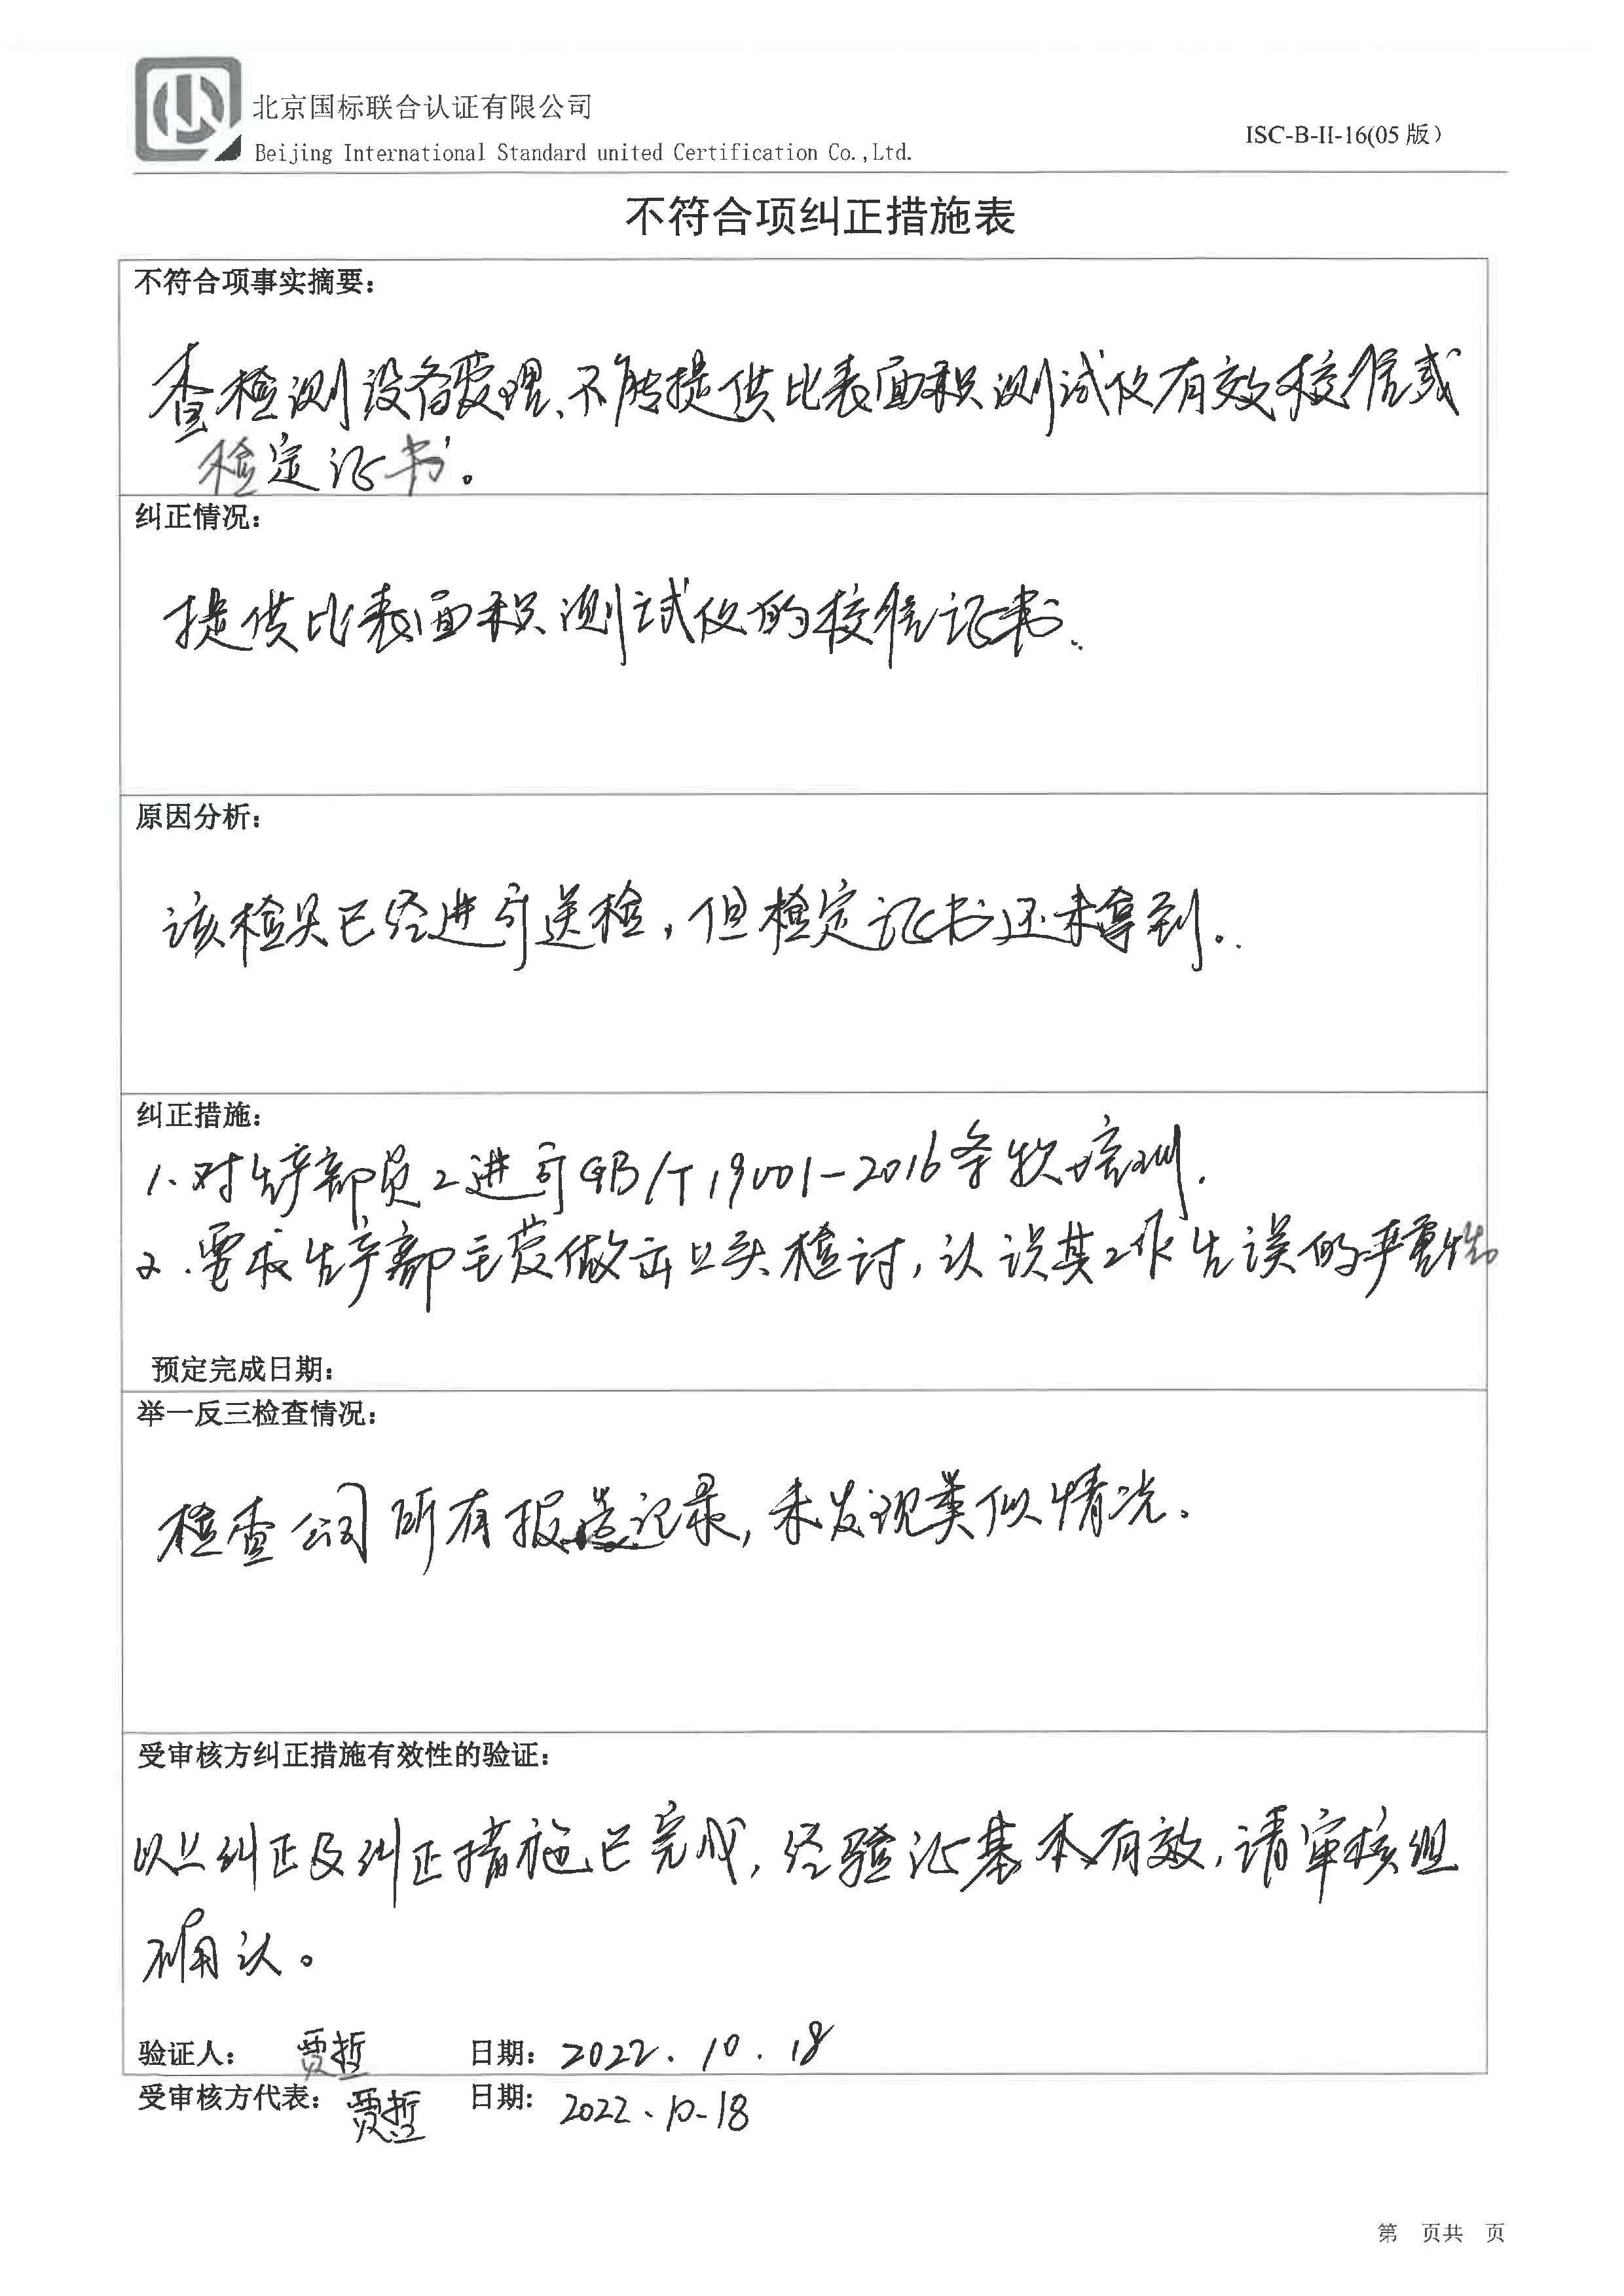 北京国标联合认证有限公司
Beijing International Standard united Certification Co.,Ltd.
ISC-B-II-16(05版)
不符合项纠正措施表
不符合项事实摘要:
查检测设备管理、不能提供比表面积测试仪有效校准或
检定证书。
纠正情况:
提供比表面积测试仪的校准证书.
原因分析:
该检具已经进行送检,但检定证书还未拿到.
纠正措施:
1.对生产部员工进行GB/T19001-2016条款培训.
2.要求生产部主管做出口头检讨,认识其工作失误的严重性
预定完成日期:
举一反三检查情况:
检查公司所有报告记录,未发现类似情况.
受审核方纠正措施有效性的验证:
以上纠正及纠正措施已完成,经验证基本有效,请审核组
确认。
验证人: 贾哲 日期: 2022.10.18
受审核方代表: 贾哲 日期: 2022、10-18
第 页共 页